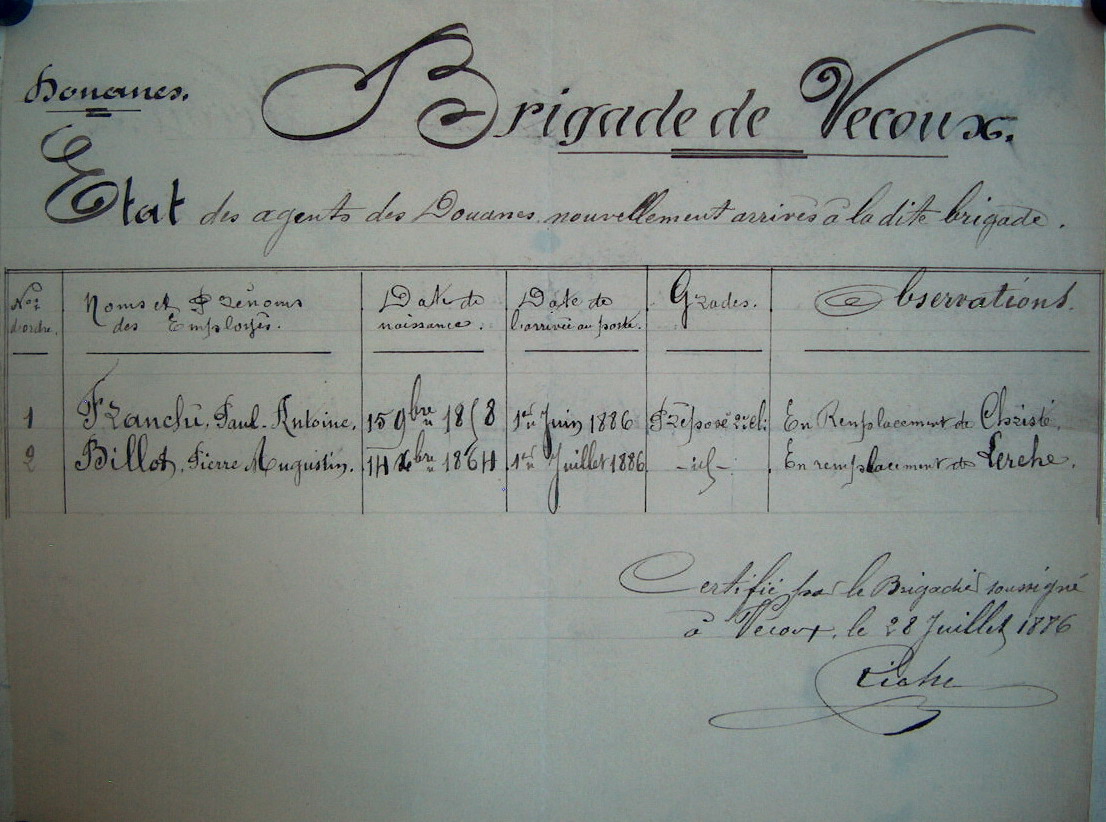 Douanes.
Brigade de Vecoux.
Etat des agents des Douanes nouvellement arrivés à la dite brigade.
Nos d'ordre.
Noms et Prénoms des Employés.
Date de naissance.
Date de l'arrivée au poste.
Grades.
Observations.
1 Franchi, Paul-Antoine. 15 9bre 1858 1er Juin 1886 Préposé 2e cl: En Remplacement de Christé.
2 Billot, Pierre Augustin. 14 xbre 1864 1er Juillet 1886 -id- En remplacement de Lerche.
Certifié par le Brigadier soussigné
à Vecoux, le 28 Juillet 1886